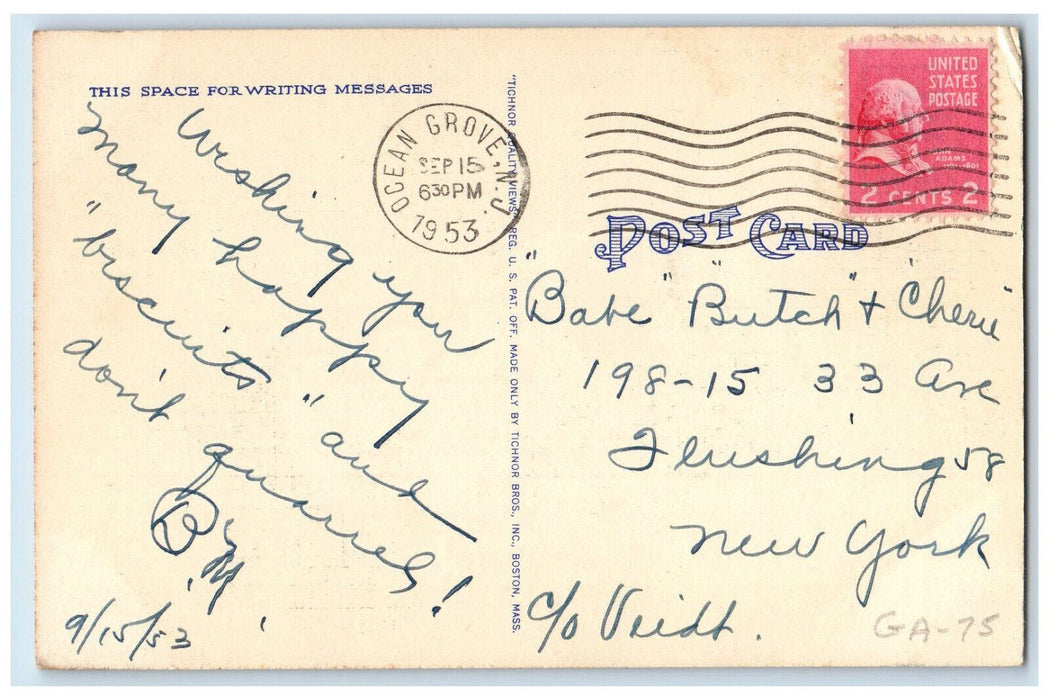 THIS SPACE FOR WRITING MESSAGES
Wishing you
many happy
"biscuits" and
don't quarrel!
B.M.
9/15/53
OCEAN GROVE, N.J.
SEP 15
6 30 PM
1953
"TICHNOR QUALITY VIEWS" REG. U. S. PAT. OFF. MADE ONLY BY TICHNOR BROS., INC., BOSTON, MASS.
UNITED
STATES
POSTAGE
ADAMS
2 CENTS 2
POST CARD
"Babe" "Butch" + "Cherie"
198-15 33 Ave
Flushing 58
New York
c/o Veidt.
GA-75